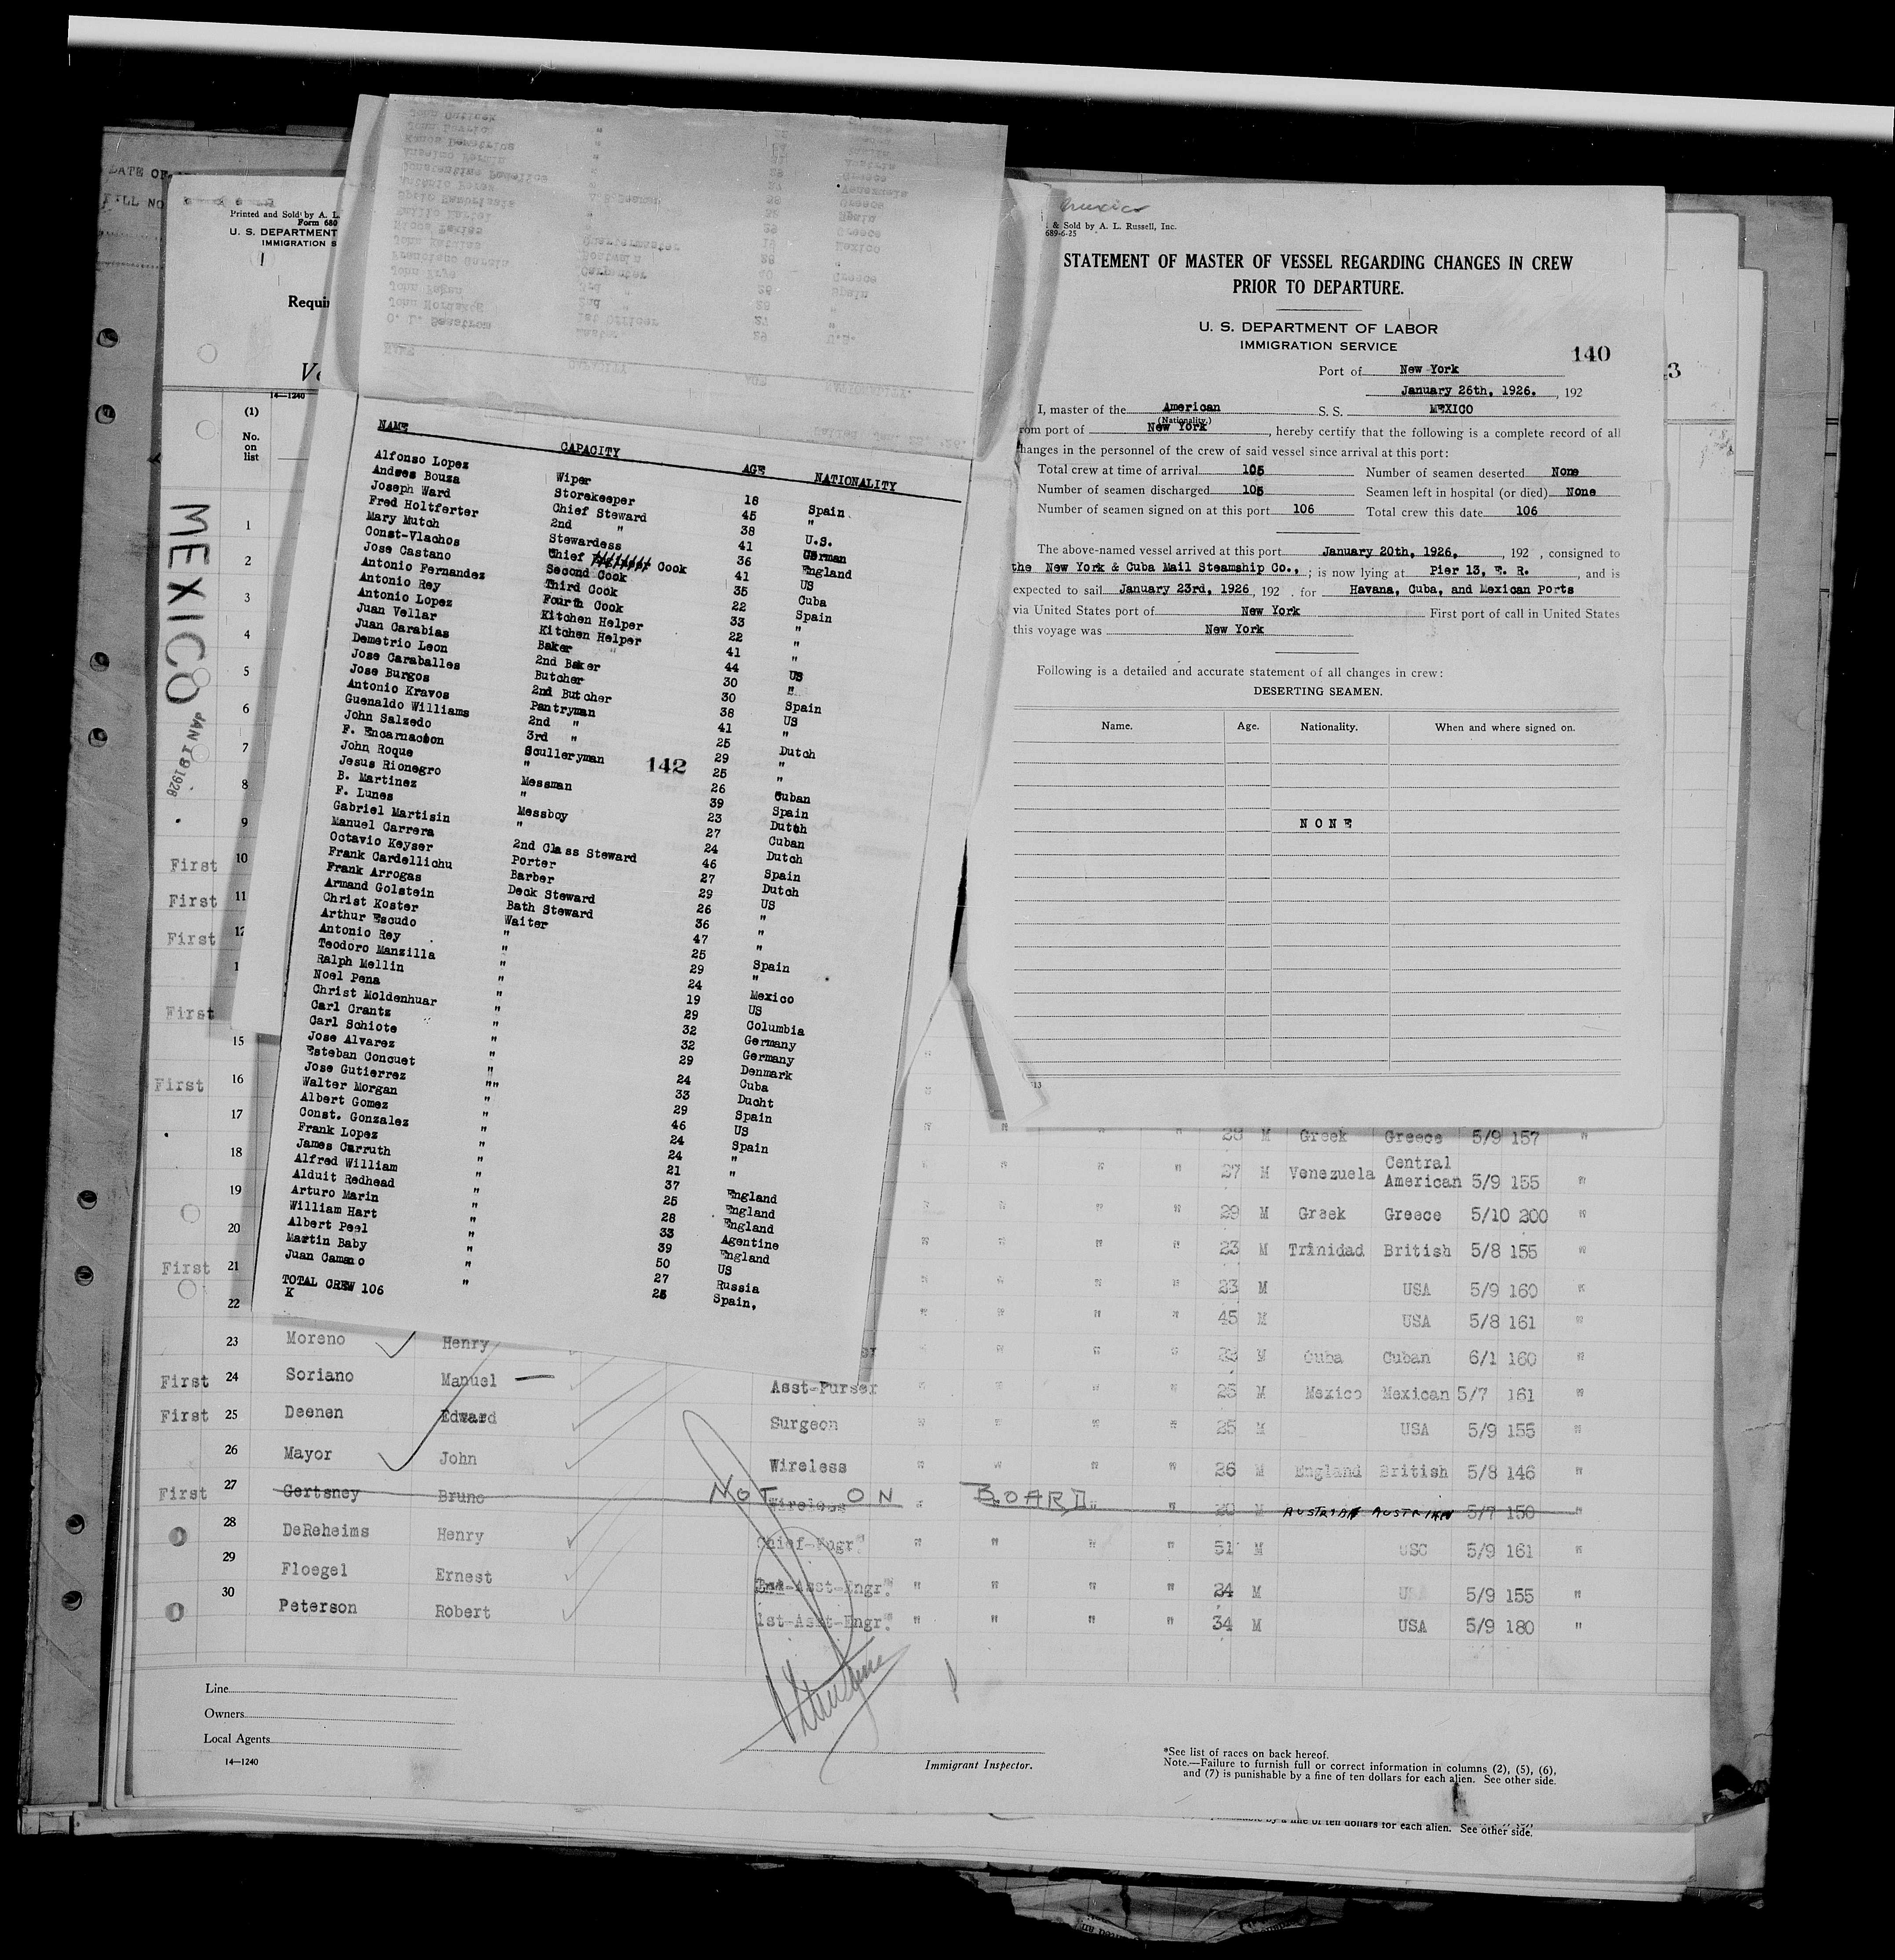 MEXICO
JAN 19 1926
DATE OF
Printed and Sold by A. L.
Form 680
U. S. DEPARTMENT
IMMIGRATION S
Requir
14—1240
(1)
No.
on
list
NAME
Alfonso Lopez
Andres Bouza
Joseph Ward
Fred Holtferter
Mary Mutch
Const-Vlachos
Jose Castano
Antonio Fernandez
Antonio Rey
Antonio Lopez
Juan Vellar
Juan Carabias
Demetrio Leon
Jose Caraballes
Jose Burgos
Antonio Kravos
Guenaldo Williams
John Salzedo
F. Encarnacion
John Roque
Jesus Rionegro
B. Martinez
F. Lunes
Gabriel Martisin
Manuel Carrera
Octavio Keyser
Frank Cardellichu
Frank Arrogas
Armand Golstein
Christ Koster
Arthur Escudo
Antonio Rey
Teodoro Manzilla
Ralph Mellin
Noel Pena
Christ Moldenhuar
Carl Crantz
Carl Schiote
Jose Alvarez
Esteban Concuet
Jose Gutierrez
Walter Morgan
Albert Gomez
Const. Gonzalez
Frank Lopez
James Carruth
Alfred William
Alduit Redhead
Arturo Marin
William Hart
Albert Peel
Martin Baby
Juan Camano
TOTAL CREW 106
K
CAPACITY
Wiper
Storekeeper
Chief Steward
2nd "
Stewardess
Chief Cook
Second Cook
Third Cook
Fourth Cook
Kitchen Helper
Kitchen Helper
Baker
2nd Baker
Butcher
2nd Butcher
Pantryman
2nd "
3rd "
Sculleryman
"
Messman
"
Messboy
"
2nd Class Steward
Porter
Barber
Deck Steward
Bath Steward
Waiter
142
AGE
18
45
38
41
36
41
35
22
33
22
41
44
30
30
38
41
25
29
25
26
39
23
27
24
46
27
29
26
36
47
25
29
24
19
29
32
32
29
24
33
29
46
24
24
21
37
25
28
33
39
50
27
25
NATIONALITY
Spain
"
U.S.
German
England
US
Cuba
Spain
"
"
"
US
"
Spain
US
"
Dutch
"
"
Cuban
Spain
Dutch
Cuban
Dutch
Spain
Dutch
US
"
"
"
Spain
"
Mexico
US
Columbia
Germany
Germany
Denmark
Cuba
Ducht
Spain
US
Spain
"
"
England
England
England
Agentine
England
US
Russia
Spain,
Mexico
& Sold by A. L. Russell, Inc.
689-6-25
STATEMENT OF MASTER OF VESSEL REGARDING CHANGES IN CREW
PRIOR TO DEPARTURE.
U. S. DEPARTMENT OF LABOR
IMMIGRATION SERVICE
140
Port of New York
January 26th, 1926. , 192
I, master of the American S. S. MEXICO
(Nationality.)
rom port of New York, hereby certify that the following is a complete record of all
hanges in the personnel of the crew of said vessel since arrival at this port:
Total crew at time of arrival 105 Number of seamen deserted None
Number of seamen discharged 105 Seamen left in hospital (or died) None
Number of seamen signed on at this port 106 Total crew this date 106
The above-named vessel arrived at this port January 20th, 1926, , 192 , consigned to
the New York & Cuba Mail Steamship Co., ; is now lying at Pier 13, E. R. , and is
expected to sail January 23rd, 1926 , 192 . for Havana, Cuba, and Mexican Ports
via United States port of New York First port of call in United States
this voyage was New York
Following is a detailed and accurate statement of all changes in crew:
DESERTING SEAMEN.
Name. Age. Nationality. When and where signed on.
NONE
1
2
3
4
5
6
7
8
9
First 10
First 11
First 12
1
First
15
First 16
17
18
19
20
First 21
22
28 M Greek Greece 5/9 157 "
27 M Venezuela Central American 5/9 155 "
29 M Greek Greece 5/10 200 "
23 M Trinidad British 5/8 155 "
23 M USA 5/9 160 "
45 M USA 5/8 161 "
23 Moreno Henry M Cuba Cuban 6/1 160 "
First 24 Soriano Manuel Asst-Purser " " " " 25 M Mexico Mexican 5/7 161 "
First 25 Deenen Edward Surgeon " " " " 25 M USA 5/9 155 "
26 Mayor John Wireless " " " " 26 M England British 5/8 146 "
First 27 Gertsney Bruno Wireless " " " M AUSTRIAN AUSTRIAN 5/7 150 "
NOT ON BOARD
28 DeReheims Henry Chief-Engr " " " " 51 M USC 5/9 161 "
29 Floegel Ernest Asst-Engr. " " " " 24 M USA 5/9 155 "
30 Peterson Robert 1st-Asst-Engr. " " " " 34 M USA 5/9 180 "
Line
Owners
Local Agents
14—1240
Immigrant Inspector.
*See list of races on back hereof.
Note.—Failure to furnish full or correct information in columns (2), (5), (6),
and (7) is punishable by a fine of ten dollars for each alien. See other side.
by a fine of ten dollars for each alien. See other side.